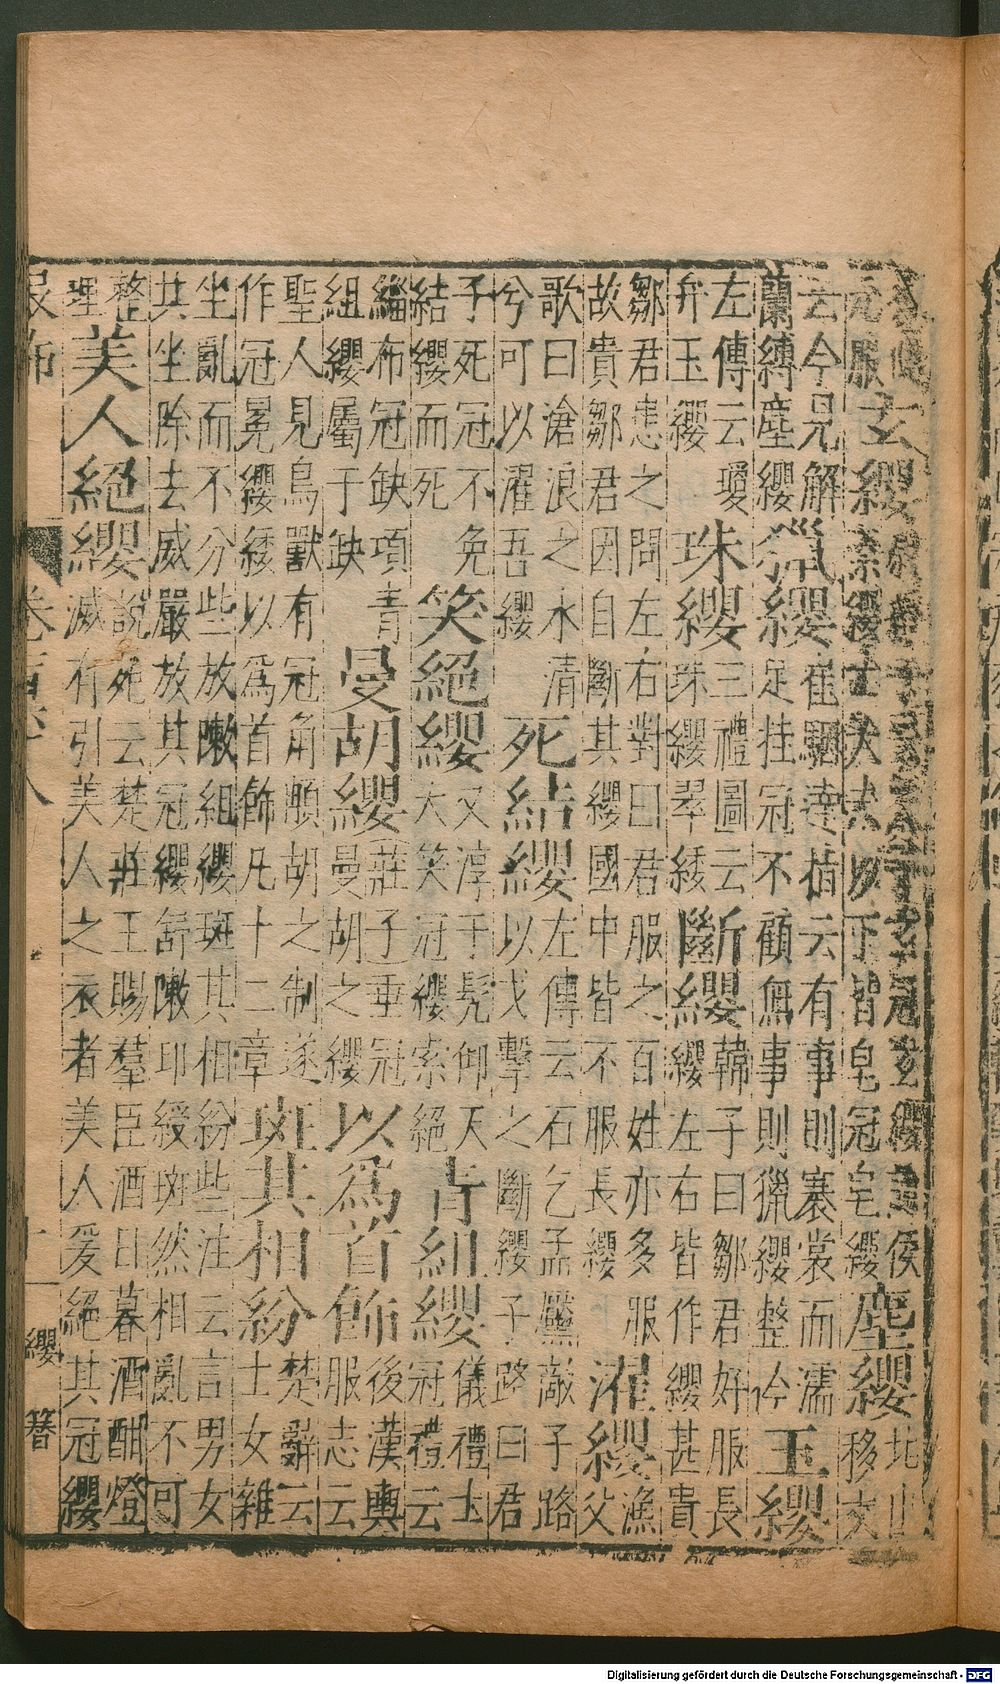 元服
玄纓
玄冠玄纓諸侯
綦纓士大夫以下皆皂冠皂纓
塵纓
北山
移文
云今見解
蘭縛塵纓
獵纓
崔駰達指云有事則褰裳而濡
足挂冠不顧無事則獵纓整衿
玉纓
左傳云瓊
弁玉纓
珠纓
三禮圖云
珠纓翠緌
斷纓
韓子曰鄒君好服長
纓左右皆作纓甚貴
鄒君患之問左右對曰君服之百姓亦多服
故貴鄒君因自斷其纓國中皆不服長纓
濯纓
漁
父
歌曰滄浪之水清
兮可以濯吾纓
死結纓
左傳云石乞孟黶敵子路
以戈擊之斷纓子路曰君
子死冠不免
結纓而死
笑絕纓
又淳于髡仰天
大笑冠纓索絕
青組纓
儀禮士
冠禮云
緇布冠缺項青
組纓屬于缺
曼胡纓
莊子垂冠
曼胡之纓
以爲首飾
後漢輿
服志云
聖人見鳥獸有冠角胡之制遂
作冠冕纓緌以爲首飾凡十二章
斑其相紛
楚辭云
士女雜
坐亂而不分些放敶組纓斑其相紛些注云言男女
共坐除去威嚴放其冠纓舒敶印綬斑然相亂不可
整
理
美人絕纓
說苑云楚莊王賜羣臣酒日暮酒酣燈
滅有引美人之衣者美人爰絕其冠纓
纓 簪
Digitalisierung gefördert durch die Deutsche Forschungsgemeinschaft - DFG